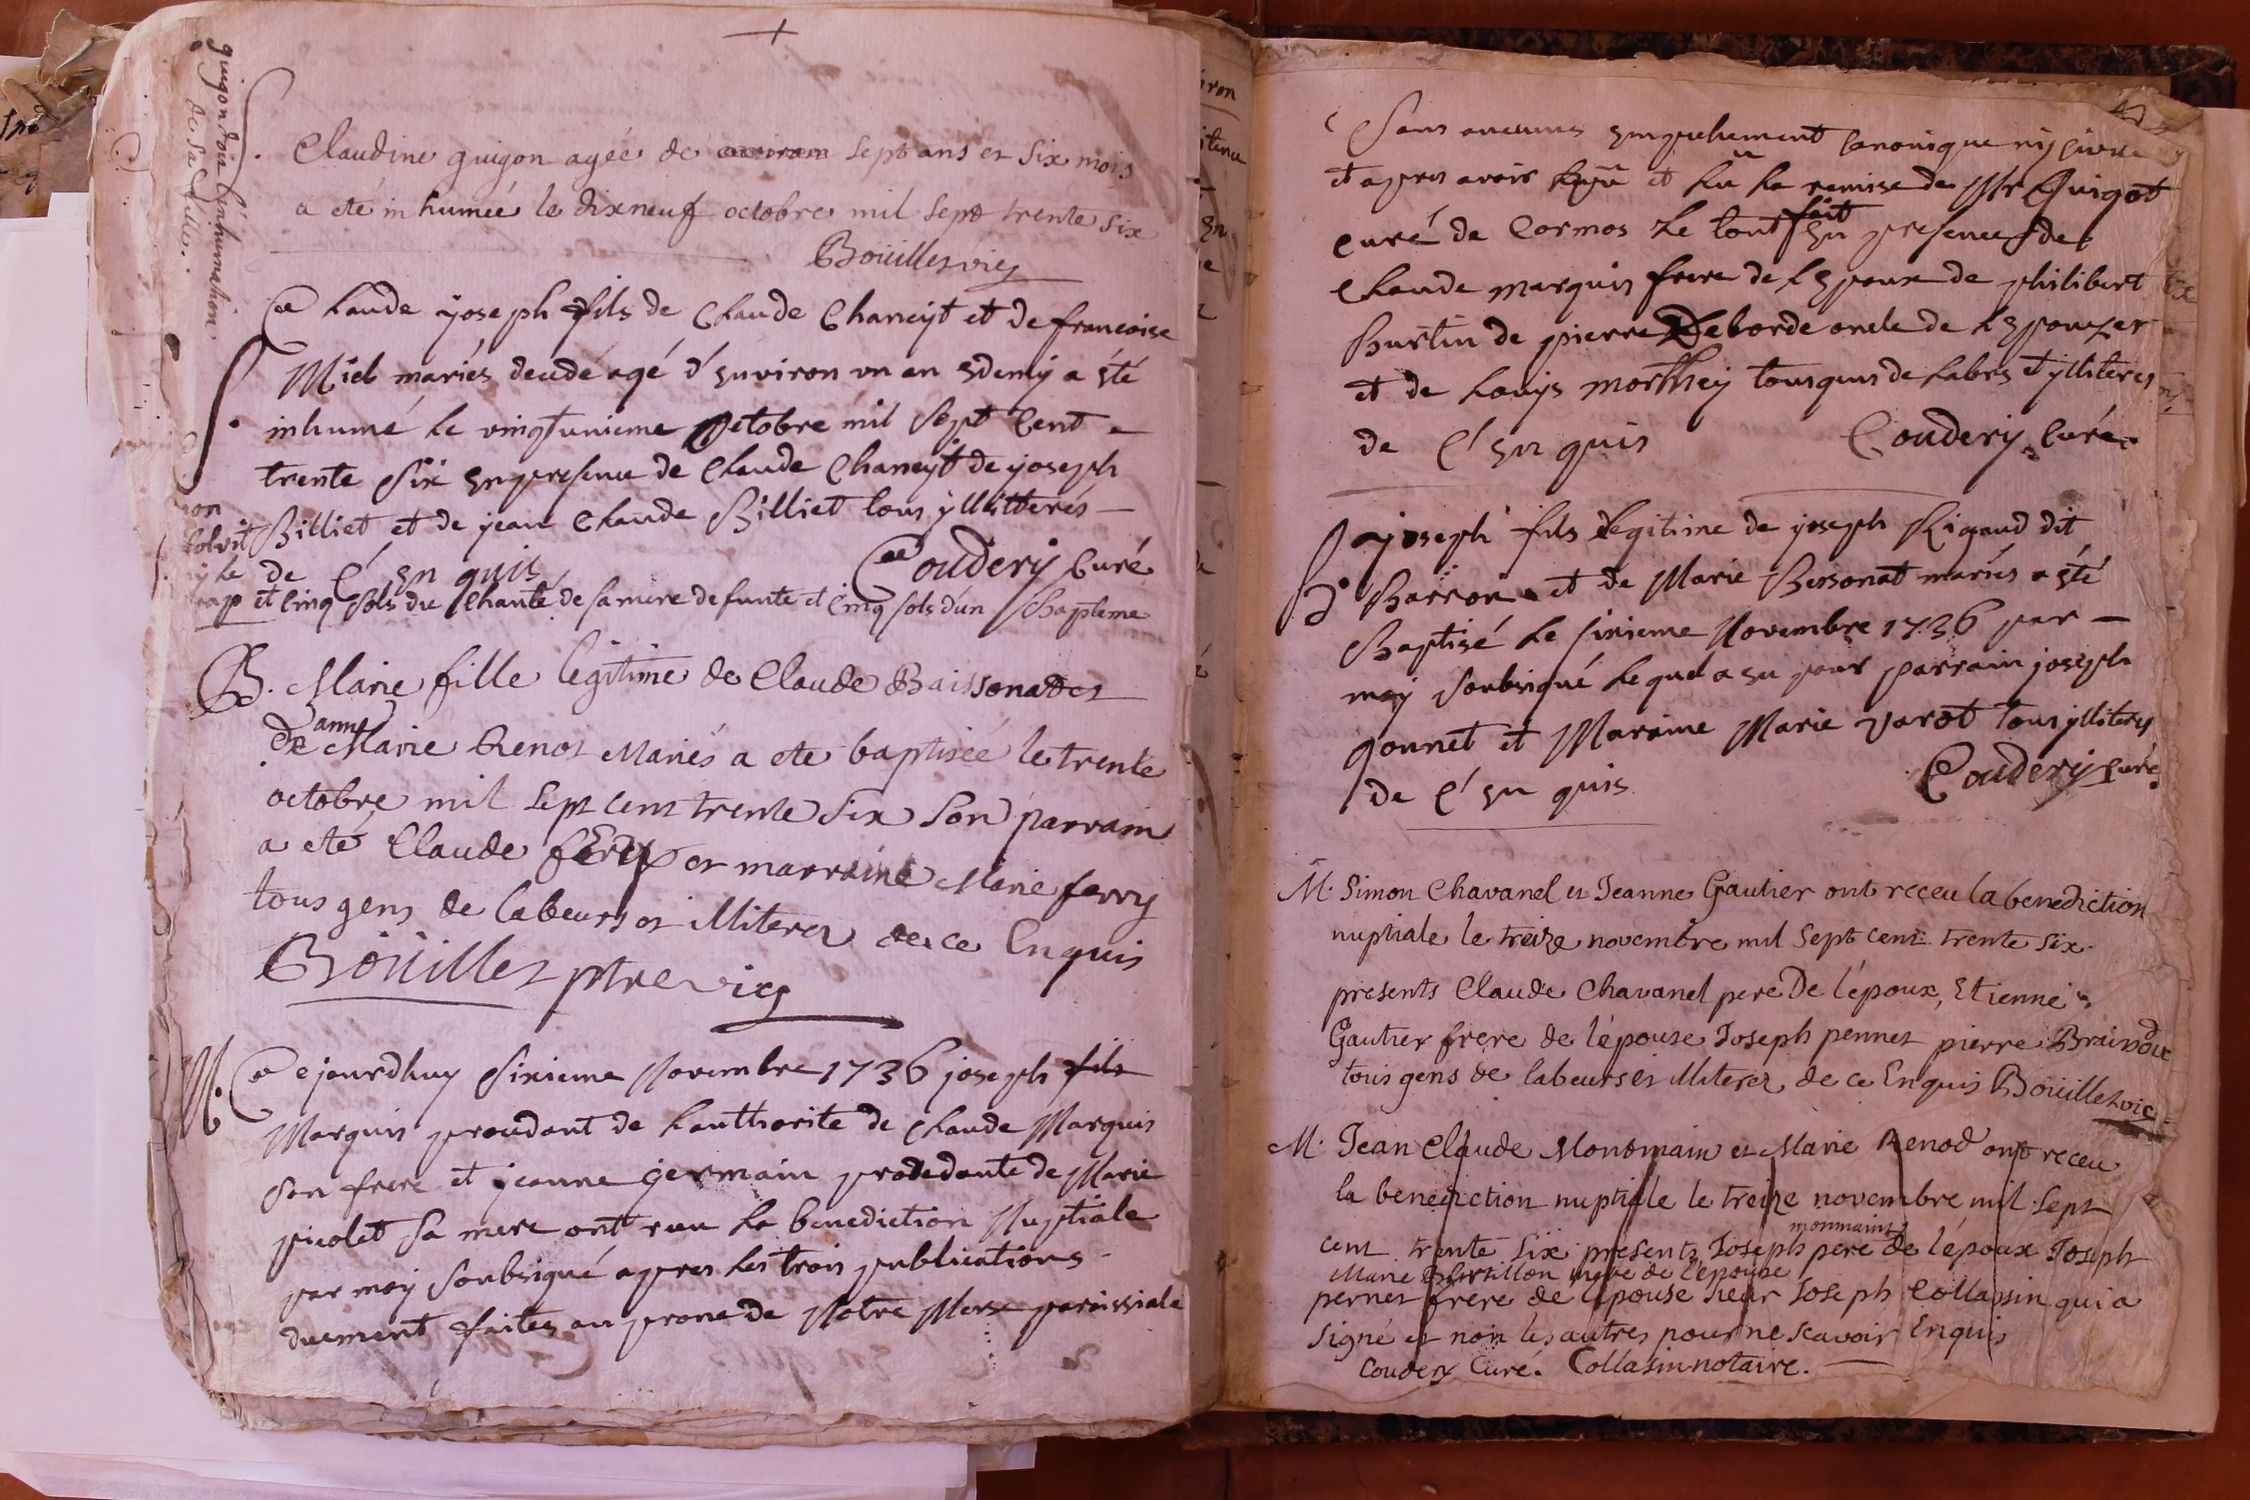 guigon doit l'enhumation
de sa fille.
S. Claudine guigon agée de environ sept ans et six mois
a eté inhumée le dixneuf octobre mil sept trente six
Boüillet vic
Claude joseph fils de Claude Chaneyt et de francoise
Miel mariés decedé agé d'environ un an edemy a été
inhumé le vingtunieme octobre mil sept cent
trente six en presence de Claude Chaneyt de joseph
Billiet et de jean Claude Billiet tous yllitterés
de C' en quis Coudery Curé
et cinq sols du chanté de sa mere defunte et cinq sols d'un Bapteme
B. Marie fille legitime de Claude Baissonat et
de anne Marie Renot Mariés a ete baptisée le trente
octobre mil sept cent trente six son parrain
a eté Claude fery et marraine Marie ferry
tous gens de labeurs et illiterez de ce Enquis
Boüillet ptre vic
M. Cejourdhuy sixieme Novembre 1736 joseph fils
Marquis procedant de lauthorite de Claude Marquis
son frere et jeanne germain procedante de Marie
picolet sa mere ont recu la benediction Nuptiale
par moy soubsigné apres les trois publications
duement faites au prone de Notre Messe paroissiale
Sans aucunes empechement canonique ny civile
et apres avoir et lu la remise de Mr Guigot
curé de Cormos le tout fait en presence de
Claude marquis frere de lepoux de philibert
Burtin de pierre Deborde oncle de lepouze
et de Louys morthey tous gens de labrs et ylliteres
de C' en quis Coudery Curé
B. joseph fils legitime de joseph Rigaud dit
Barron et de Marie Bersonat mariés a été
Baptisé le sixieme Novembre 1736 par
moy soubsigné lequel a eu pour parrain joseph
gonnet et Maraine Marie varot tous ylliteres
de C' en quis Coudery curé
M. Simon Chavanel et Jeanne Gautier ont receu la benediction
nuptiale le treize novembre mil sept cent trente six
presents Claude Chavanel pere De l'époux, Etienne
Gautier frere de l'épouse Joseph pennet pierre
tous gens de labeurs et illiterez de ce Enquis Boüillet vic
M. Jean Claude Monmain et Marie Renod ont receu
la benediction nuptiale le treize novembre mil sept
cent trente six presents Joseph monmain pere de l'époux Joseph
Marie mere de l'epouse
pernet frere de l'épouse sieur Joseph Collassin qui a
signé et non les autres pour ne scavoir Enquis
Coudery Curé. Collasin notaire.